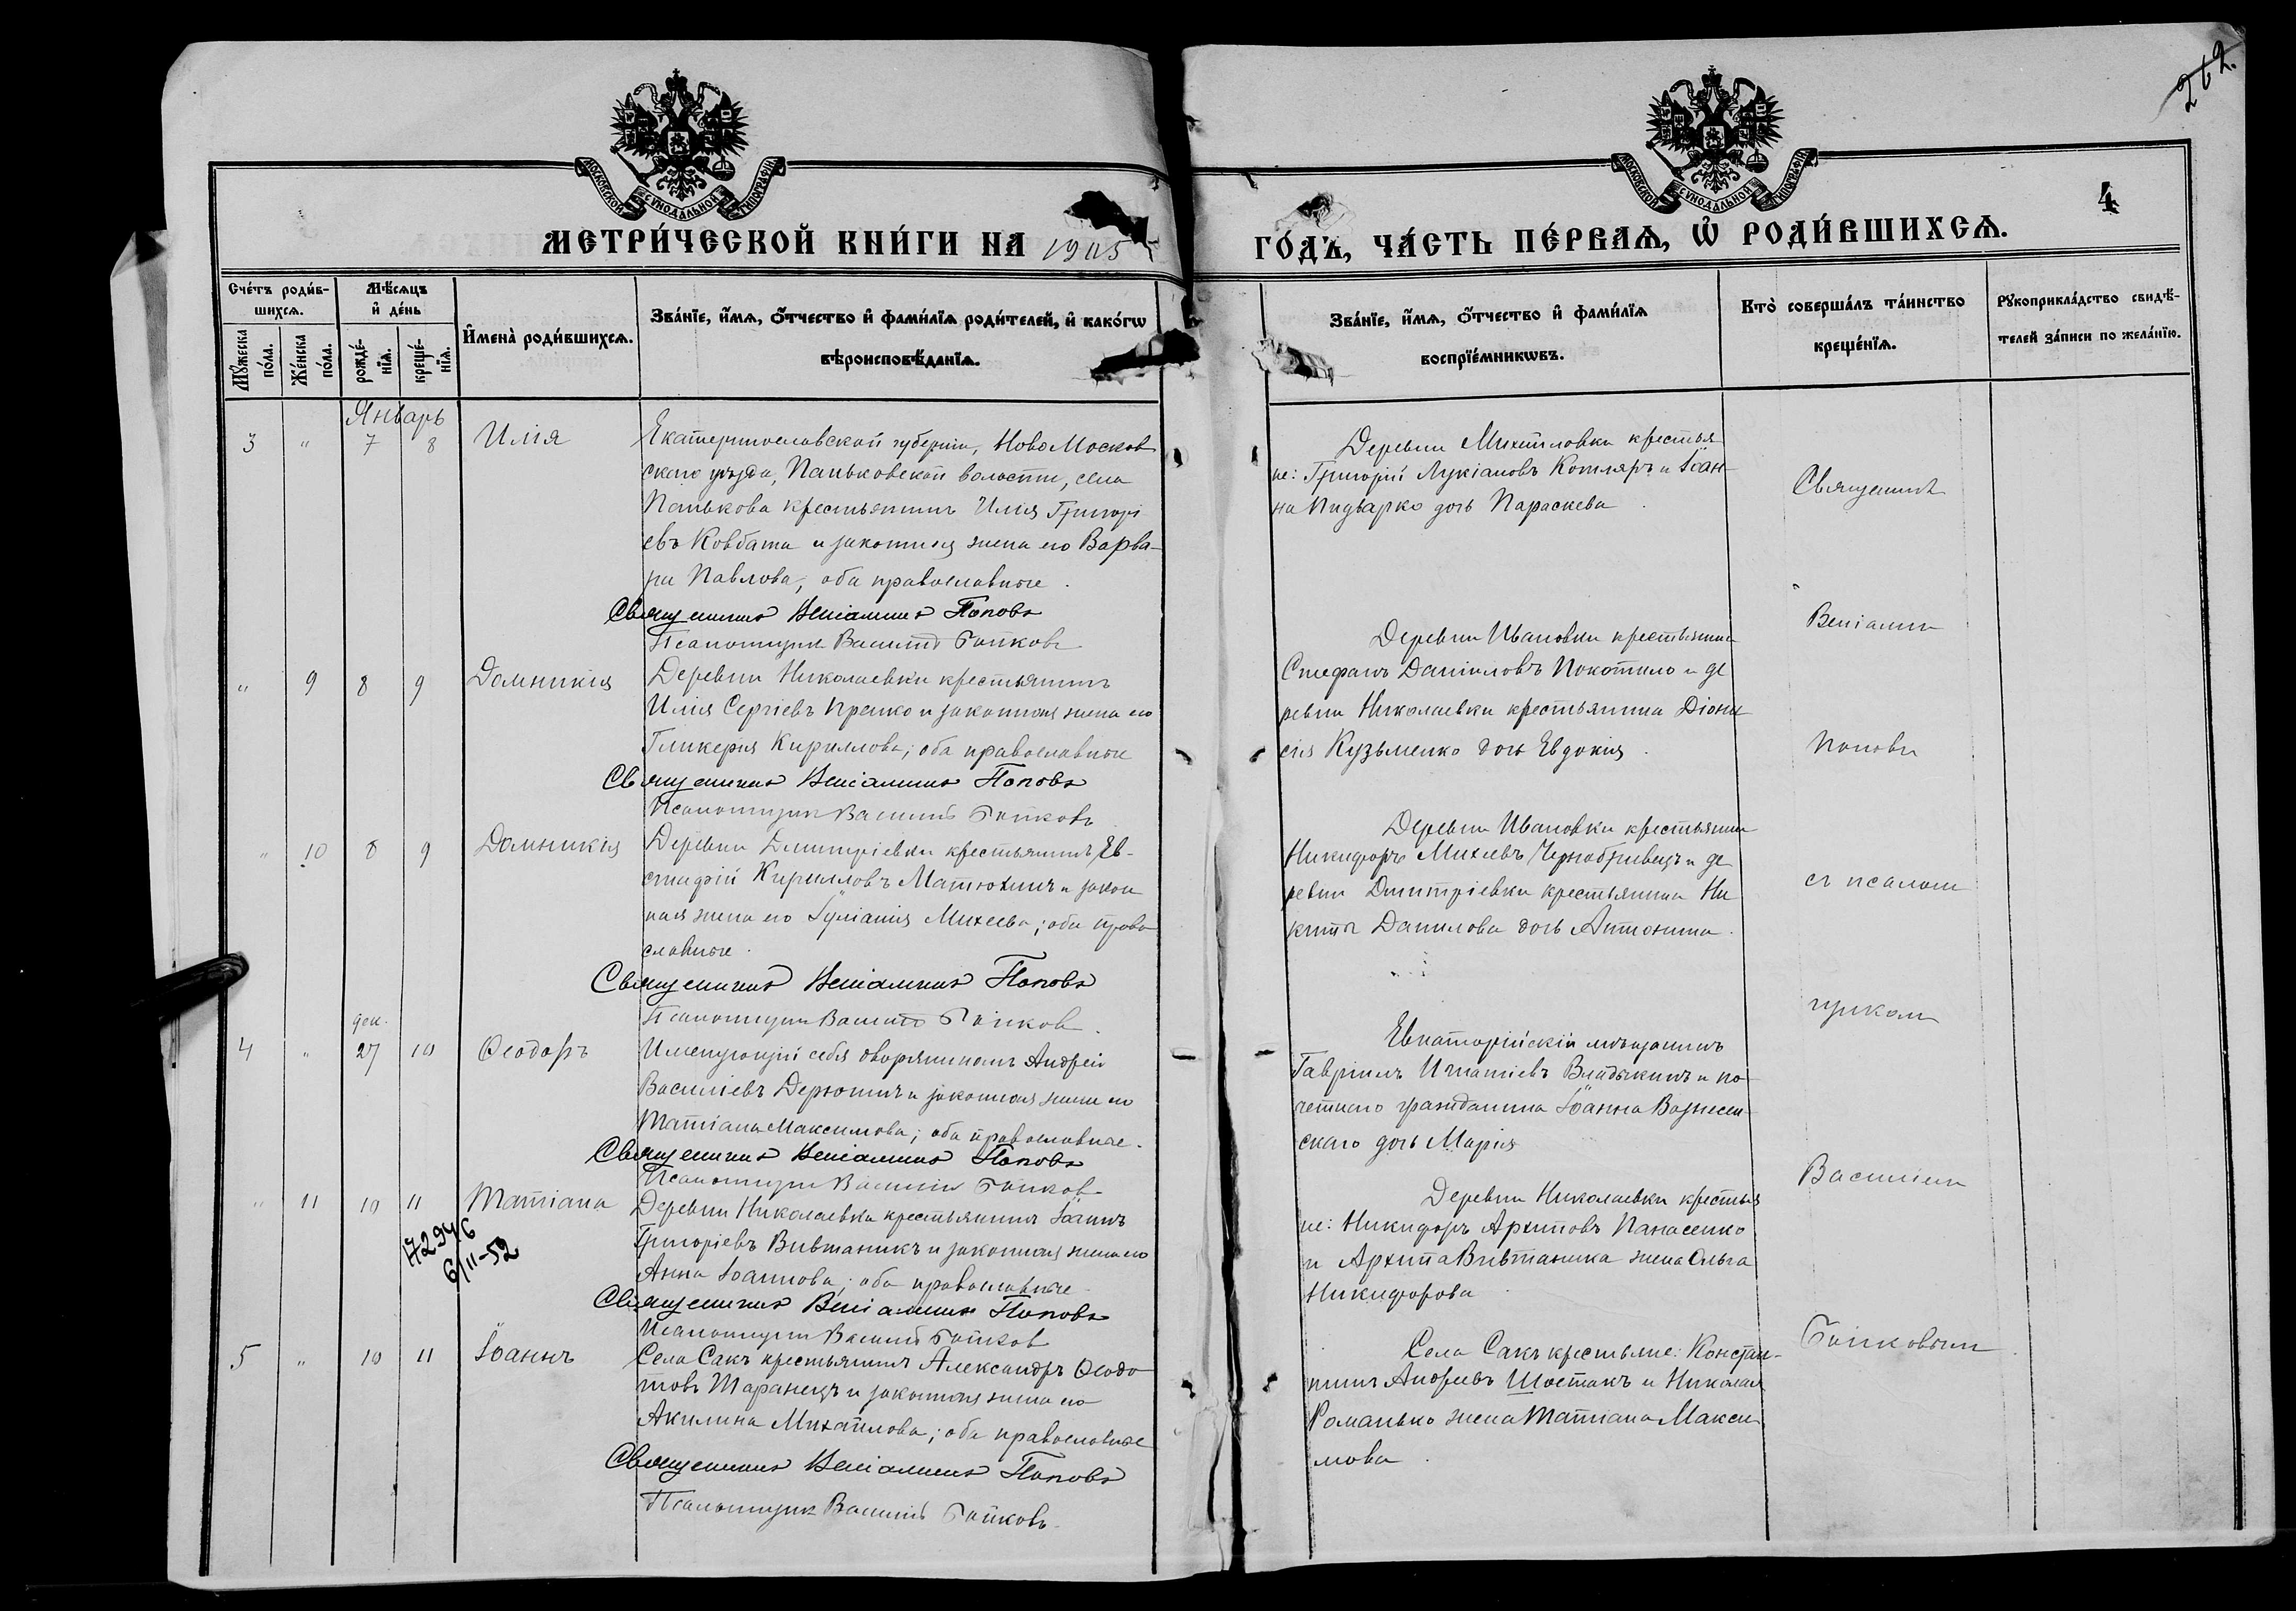 262.
4
МОСКОВСКОЙ СУНОДАЛЬНОЙ ТИПОГРАФІИ
МОСКОВСКОЙ СУНОДАЛЬНОЙ ТИПОГРАФІИ
МЕТРИ́ЧЕСКОЙ КНИ́ГИ НА 1905
ГО́ДЪ, ЧА́СТЬ ПЕ́РВАѦ, Ѡ҆ РОДИ́ВШИХСѦ.
Сче́тъ роди́в-
шихсѧ.
Мѣ́сѧцъ
и҆ де́нь
Мꙋ́жеска
по́ла.
Же́нска
по́ла.
рожде́-
нїѧ.
креще́-
нїѧ.
И҆мена̀ роди́вшихсѧ.
Зва́нїе, и҆́мѧ, ѻ҆́тчество и҆ фами́лїѧ роди́телей, и҆ како́гѡ
вѣроисповѣ́данїѧ.
Зва́нїе, и҆́мѧ, ѻ҆́тчество и҆ фами́лїѧ
воспрїе́мникѡвъ.
Кто̀ соверша́лъ та́инство
креще́нїѧ.
Рꙋкоприкла́дство свидѣ́-
телей за́писи по жела́нїю.
Январь
3 " 7 8 Илія
Екатеринославской губерніи, НовоМосков
скаго уѣзда, Паньковской волости, села
Панькова крестьянинъ Илія Григорі
евъ Ковбаса и законная жена его Варва-
ра Павлова, оба православные.
Священникъ Веніаминъ Поповъ
Псаломщикъ Василій Бойковъ
Деревни Михайловки крестья
не: Григорій Лукіановъ Котляръ и Іоан-
на Пидварко дочь Параскева.
" 9 8 9 Домникія
Деревни Николаевки крестьянинъ
Илія Сергіевъ Прейко и законная жена его
Гликерія Кириллова; оба православные
Священникъ Веніаминъ Поповъ
Псаломщикъ Василій Бойковъ
Деревни Ивановки крестьянинъ
Стефанъ Даніиловъ Покотило и де
ревни Николаевки крестьянина Діони
сія Кузьменко дочь Евдокія.
" 10 8 9 Домникія
Деревни Димитріевки крестьянинъ Ев-
стафій Кирилловъ Матюхинъ и закон
ная жена его Іуліанія Михеева; оба право
славные.
Священникъ Веніаминъ Поповъ
Псаломщикъ Василій Бойковъ.
Деревни Ивановки крестьянинъ
Никифоръ Михеевъ Чернобривецъ и де
ревни Димитріевки крестьянина Ни
киты Данилова дочь Антонина.
дек.
4 " 27 10 Ѳеодоръ
Именующій себя дворяниномъ Андрей
Василіевъ Дерюгинъ и законная жена его
Татіана Максимова; оба православные.
Священникъ Веніаминъ Поповъ
Псаломщикъ Василій Бойковъ
Евпаторійскій мѣщанинъ
Гавріилъ Игнатіевъ Владыкинъ и по
четнаго гражданина Іоанна Вознесен-
скаго дочь Марія
" 11 10 11 Татіана
17294б
6/II-52
Деревни Николаевки крестьянинъ Іоаннъ
Григоріевъ Вивтаникъ и законная жена его
Анна Іоаннова; оба православные
Священникъ Веніаминъ Поповъ
Псаломщикъ Василій Бойковъ
Деревни Николаевки крестья
не: Никифоръ Архиповъ Панасенко
и Архипа Вивтаника жена Ольга
Никифорова.
5 " 10 11 Іоаннъ
Села Сакъ крестьянинъ Александръ Ѳеодо
товъ Таранецъ и законная жена его
Акилина Михайлова; оба православные
Священникъ Веніаминъ Поповъ
Псаломщикъ Василій Бойковъ.
Села Сакъ крестьяне: Констан-
тинъ Андреевъ Шостакъ и Николая
Романько жена Татіана Макси
мова.
Священникъ
Веніаминъ
Поповъ
съ псалом
щиком
Василіем
Бойковым.